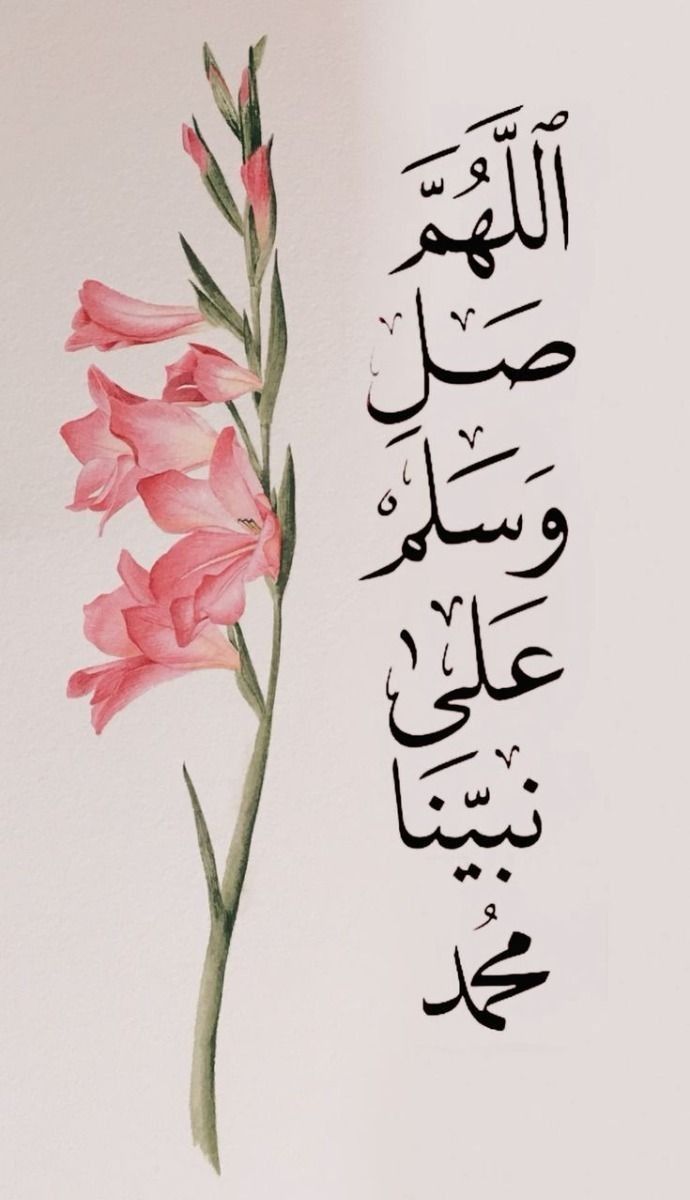 ٱللَّهُمَّ
صَلِ
وَسَلِم
عَلَىٰ
نَبيِّنَا
محُمد